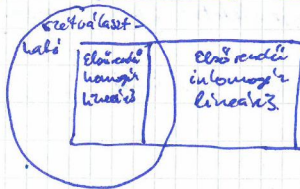 szétválaszt-
ható
Elsőrendű
homogén
lineáris
Elsőrendű
inhomogén
lineáris